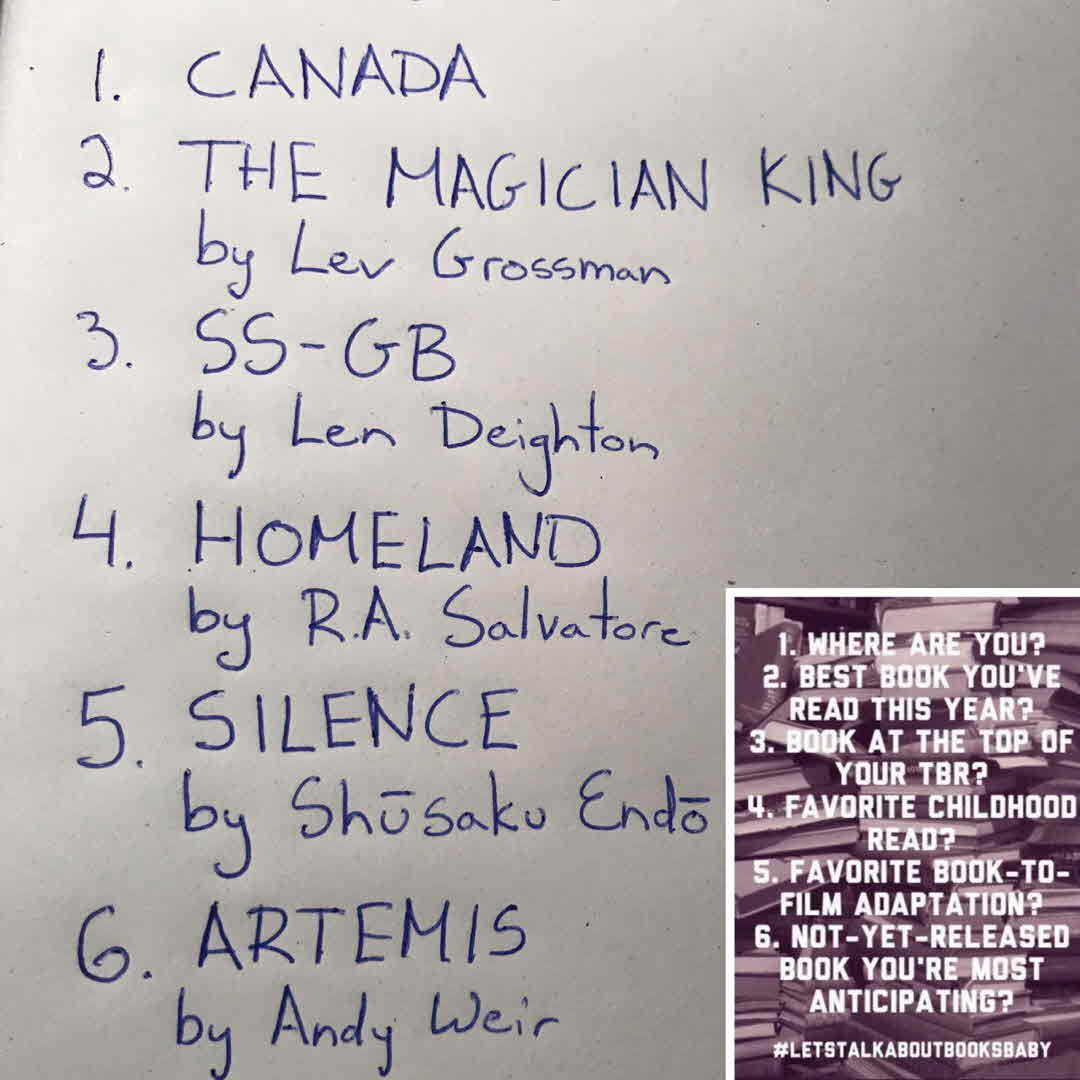 1. CANADA
2. THE MAGICIAN KING
by Lev Grossman
3. SS-GB
by Len Deighton
4. HOMELAND
by R.A. Salvatore
5. SILENCE
by Shūsaku Endō
6. ARTEMIS
by Andy Weir
1. WHERE ARE YOU?
2. BEST BOOK YOU'VE
READ THIS YEAR?
3. BOOK AT THE TOP OF
YOUR TBR?
4. FAVORITE CHILDHOOD
READ?
5. FAVORITE BOOK-TO-
FILM ADAPTATION?
6. NOT-YET-RELEASED
BOOK YOU'RE MOST
ANTICIPATING?
#LETSTALKABOUTBOOKSBABY